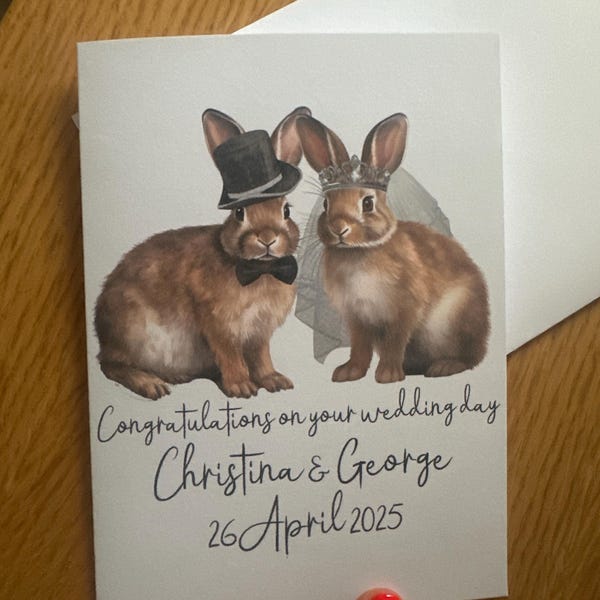 Congratulations on your wedding day
Christina & George
26 April 2025